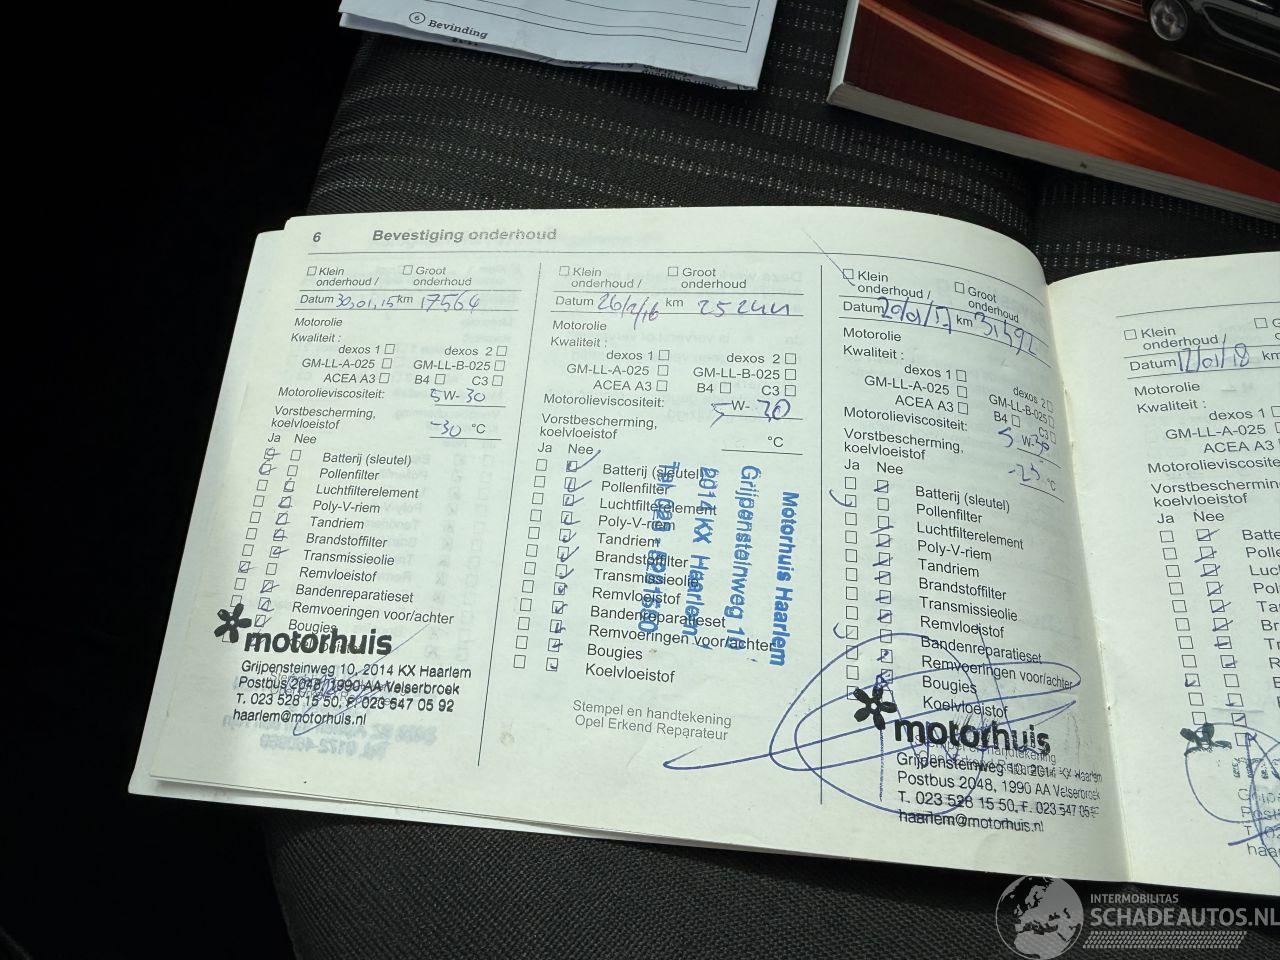 6 Bevinding
6 Bevestiging onderhoud
Klein onderhoud / Groot onderhoud
Datum 30.01.15 km 17564
Motorolie
Kwaliteit :
dexos 1 dexos 2
GM-LL-A-025 GM-LL-B-025
ACEA A3 B4 C3
Motorolieviscositeit: 5 W- 30
Vorstbescherming,
koelvloeistof -30 °C
Ja Nee
Batterij (sleutel)
Pollenfilter
Luchtfilterelement
Poly-V-riem
Tandriem
Brandstoffilter
Transmissieolie
Remvloeistof
Bandenreparatieset
Remvoeringen voor/achter
Bougies
motorhuis
Grijpensteinweg 10, 2014 KX Haarlem
Postbus 2048, 1990 AA Velserbroek
T. 023 528 15 50, F. 023 547 05 92
haarlem@motorhuis.nl
Klein onderhoud / Groot onderhoud
Datum 26/2/16 km
Motorolie
Kwaliteit :
dexos 1 dexos 2
GM-LL-A-025 GM-LL-B-025
ACEA A3 B4 C3
Motorolieviscositeit: 5 W- 30
Vorstbescherming,
koelvloeistof °C
Ja Nee
Batterij (sleutel)
Pollenfilter
Luchtfilterelement
Poly-V-riem
Tandriem
Brandstoffilter
Transmissieolie
Remvloeistof
Bandenreparatieset
Remvoeringen voor/achter
Bougies
Koelvloeistof
Motorhuis Haarlem
Grijpensteinweg 10
2014 KX Haarlem
Stempel en handtekening
Opel Erkend Reparateur
Klein onderhoud / Groot onderhoud
Datum 20/01/17 km 31.592
Motorolie
Kwaliteit :
dexos 1 dexos 2
GM-LL-A-025 GM-LL-B-025
ACEA A3 B4 C3
Motorolieviscositeit: 5 W-30
Vorstbescherming,
koelvloeistof -25 °C
Ja Nee
Batterij (sleutel)
Pollenfilter
Luchtfilterelement
Poly-V-riem
Tandriem
Brandstoffilter
Transmissieolie
Remvloeistof
Bandenreparatieset
Remvoeringen voor/achter
Bougies
Koelvloeistof
motorhuis
Grijpensteinweg 10, 2014 KX Haarlem
Postbus 2048, 1990 AA Velserbroek
T. 023 528 15 50, F. 023 547 05
haarlem@motorhuis.nl
Klein onderhoud /
Datum 12/01/18 km
Motorolie
Kwaliteit :
dexos 1
GM-LL-A-025
ACEA A3
Motorolieviscositeit
Vorstbescherming
koelvloeistof
Ja Nee
INTERMOBILITAS
SCHADEAUTOS.NL